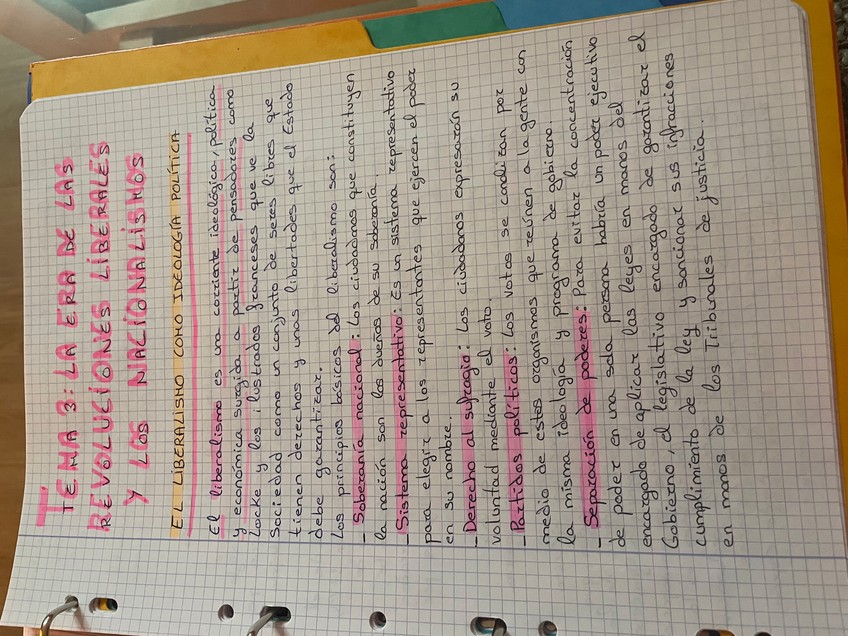 TEMA 3: LA ERA DE LAS
REVOLUCIONES LIBERALES
Y LOS NACIONALISMOS
EL LIBERALISMO COMO IDEOLOGÍA POLÍTICA
El liberalismo es una corriente ideológica, política
y económica surgida a partir de pensadores como
Locke y los ilustrados franceses que ve la
sociedad como un conjunto de seres libres que
tienen derechos y unas libertades que el Estado
debe garantizar.
Los principios básicos del liberalismo son:
- Soberanía nacional: Los ciudadanos que constituyen
la nación son los dueños de su soberanía.
- Sistema representativo: Es un sistema representativo
para elegir a los representantes que ejercen el poder
en su nombre.
- Derecho al sufragio: Los ciudadanos expresarán su
voluntad mediante el voto.
- Partidos políticos: Los votos se canalizan por
medio de estos organismos que reúnen a la gente con
la misma ideología y programa de gobierno.
- Separación de poderes: Para evitar la concentración
de poder en una sola persona habría un poder ejecutivo
encargado de aplicar las leyes en manos del
Gobierno, el legislativo encargado de garantizar el
cumplimiento de la ley y sancionar sus infracciones
en manos de los Tribunales de justicia.